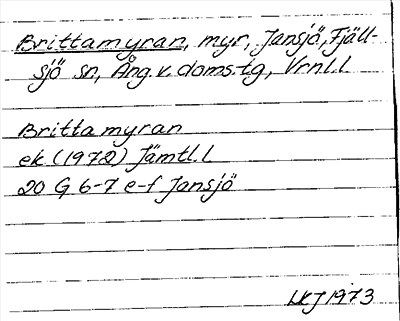 Brittamyran, myr, Jansjö, Fjäll-
sjö sn, Ång. v. doms.tg, Vrnl.l
Brittamyran
ek (1972) Jämtl.l
20 G 6-7 e-f Jansjö
LKJ 1973